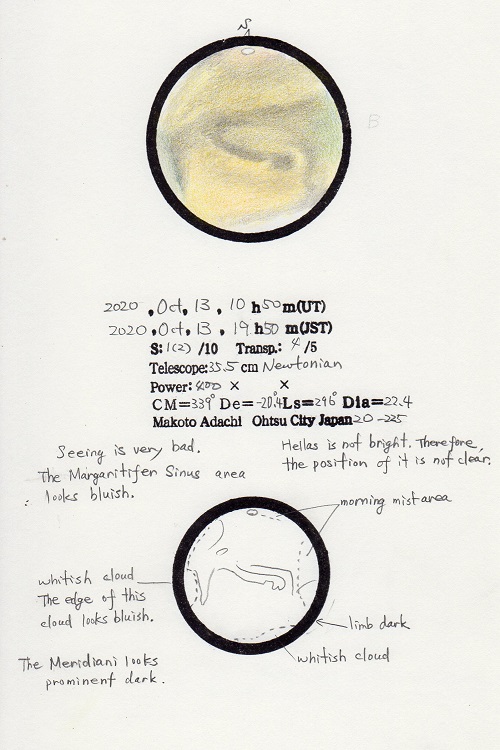 S
B
2020, Oct, 13, 10 h 50 m(UT)
2020, Oct, 13, 19 h 50 m(JST)
S: 1(2) /10 Transp.: 4 /5
Telescope: 35.5 cm Newtonian
Power: 400 × ×
CM=339° De=-20.4 Ls=296° Dia=22.4
Makoto Adachi Ohtsu City Japan 20-225
Seeing is very bad.
The Margaritifer Sinus area
looks bluish.
Hellas is not bright. Therefore,
the position of it is not clear.
morning mist area
whitish cloud
The edge of this
cloud looks bluish.
limb dark
whitish cloud
The Meridiani looks
prominent dark.